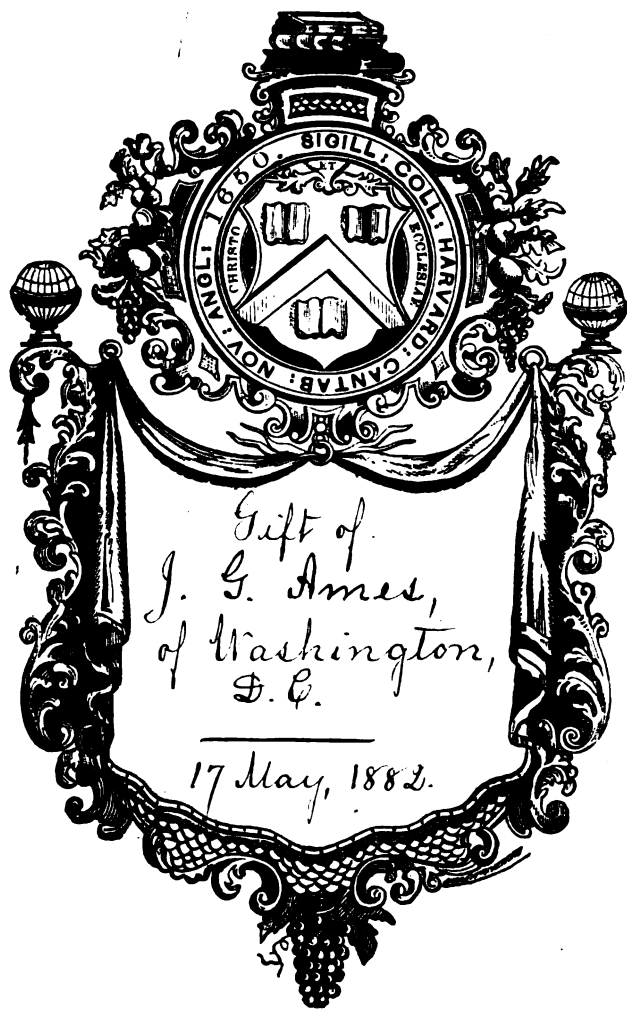 SIGILL: COLL: HARVARD: CANTAB: NOV: ANGL: 1650.
ET
CHRISTO
ECCLESIAE
Gift of
J. G. Ames,
of Washington,
D. C.
17 May, 1882.